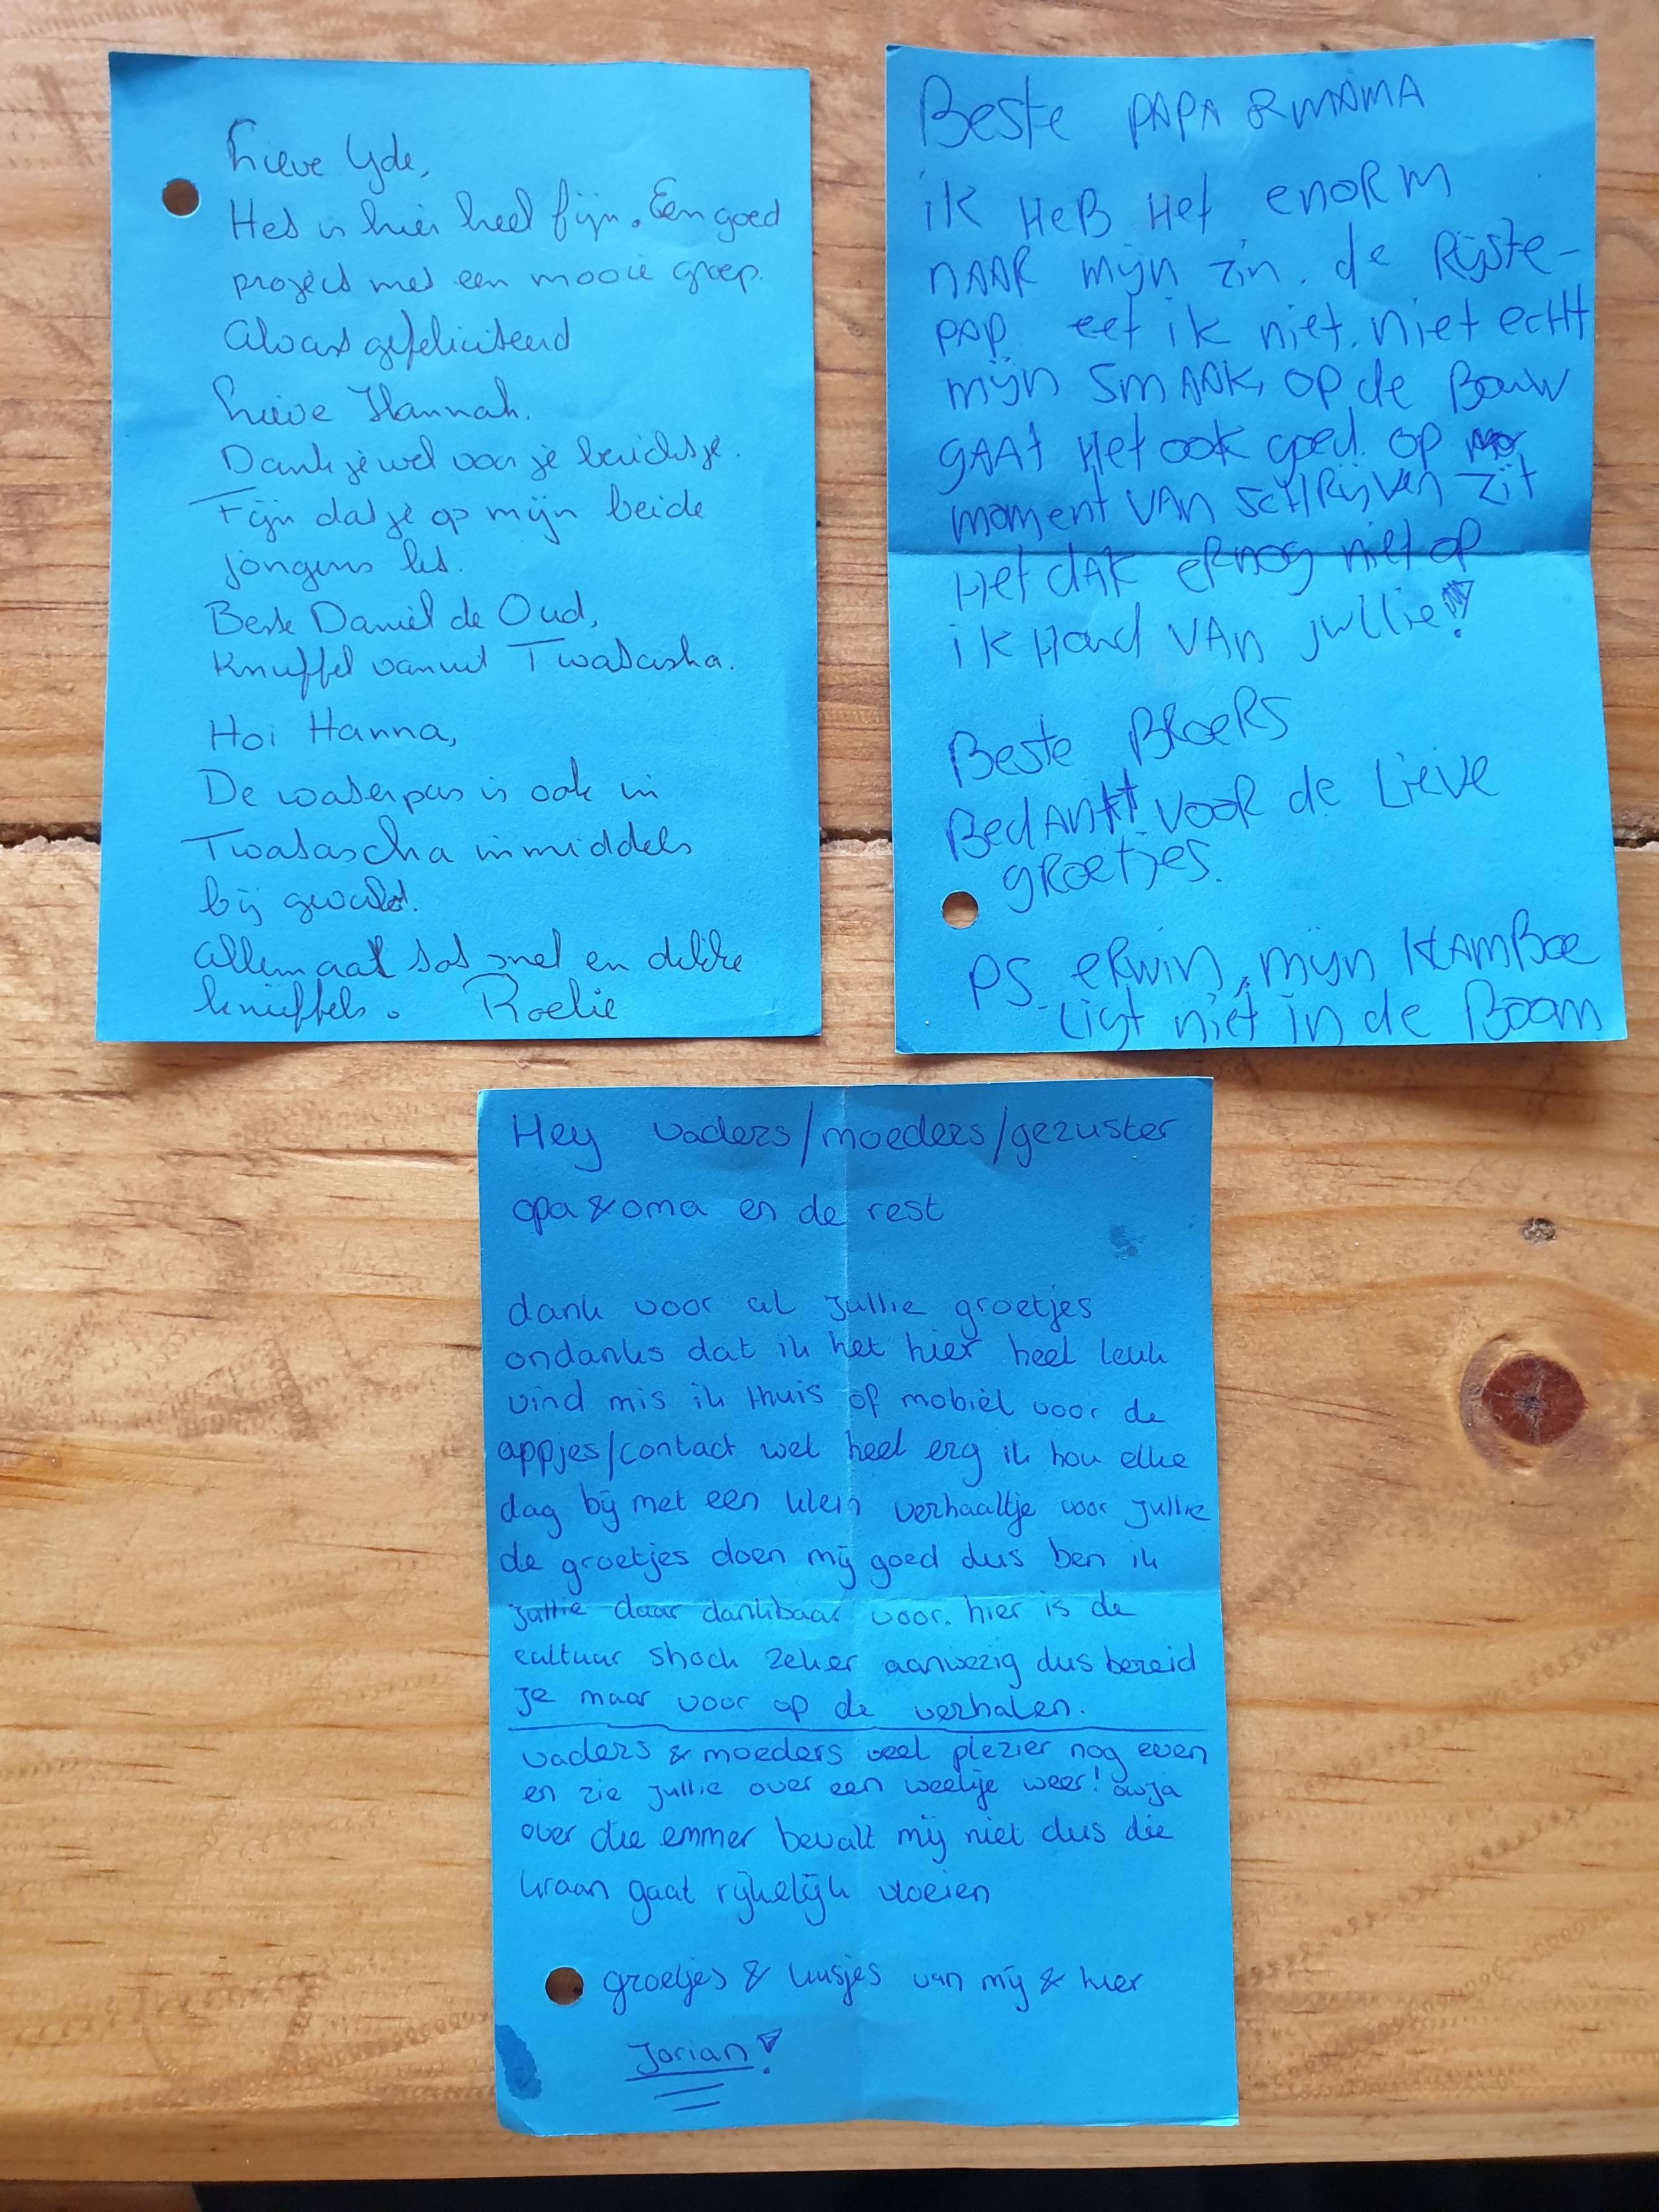 Lieve Yde,
Het is hier heel fijn. Een goed
project met een mooie groep.
Alvast gefeliciteerd
Lieve Hannah.
Dankjewel voor je berichtje.
Fijn dat je op mijn beide
jongens let.
Beste Daniël de Oud,
Knuffel vanuit Twatasha.
Hoi Hanna,
De waterpas is ook in
Twatascha inmiddels
bij
Allemaal tot snel en dikke
knuffels. Roelie
Beste PAPA & MAMA
ik HeB Het enorm
NAAR mijn zin. de Rijste-
pap eet ik niet. niet echt
mijn SMAAK, op de Bouw
gAAt Het ook goed. op
moment VAN schRijven zit
Het dAk eR nog niet op
ik Houd VAn jullie!
Beste BRoeRs
BedAnkt voor de Lieve
gRoetjes.
PS. eRwin, mijn HAmBoe
Ligt niet in de Boom
Hey vaders/moeders/gezuster
opa & oma en de rest
dank voor al jullie groetjes
ondanks dat ik het hier heel leuk
vind mis ik thuis of mobiel voor de
appjes/contact wel heel erg ik hou elke
dag bij met een klein verhaaltje voor jullie
de groetjes doen mij goed dus ben ik
jullie daar dankbaar voor. hier is de
cultuur shock zeker aanwezig dus bereid
je maar voor op de verhalen.
vaders & moeders veel plezier nog even
en zie jullie over een weekje weer! owja
over die emmer bevalt mij niet dus die
kraan gaat rijkelijk vloeien
groetjes & kusjes van mij & hier
Jorian!